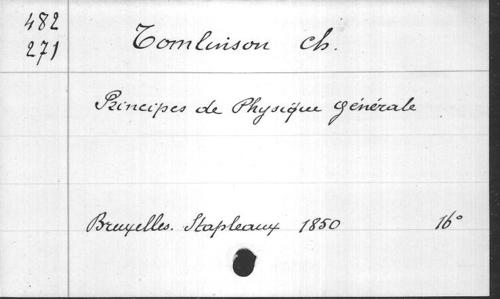 482
271
Tomlinson Ch.
Principes de Physique générale
Bruxelles. Stapleaux 1850 16°